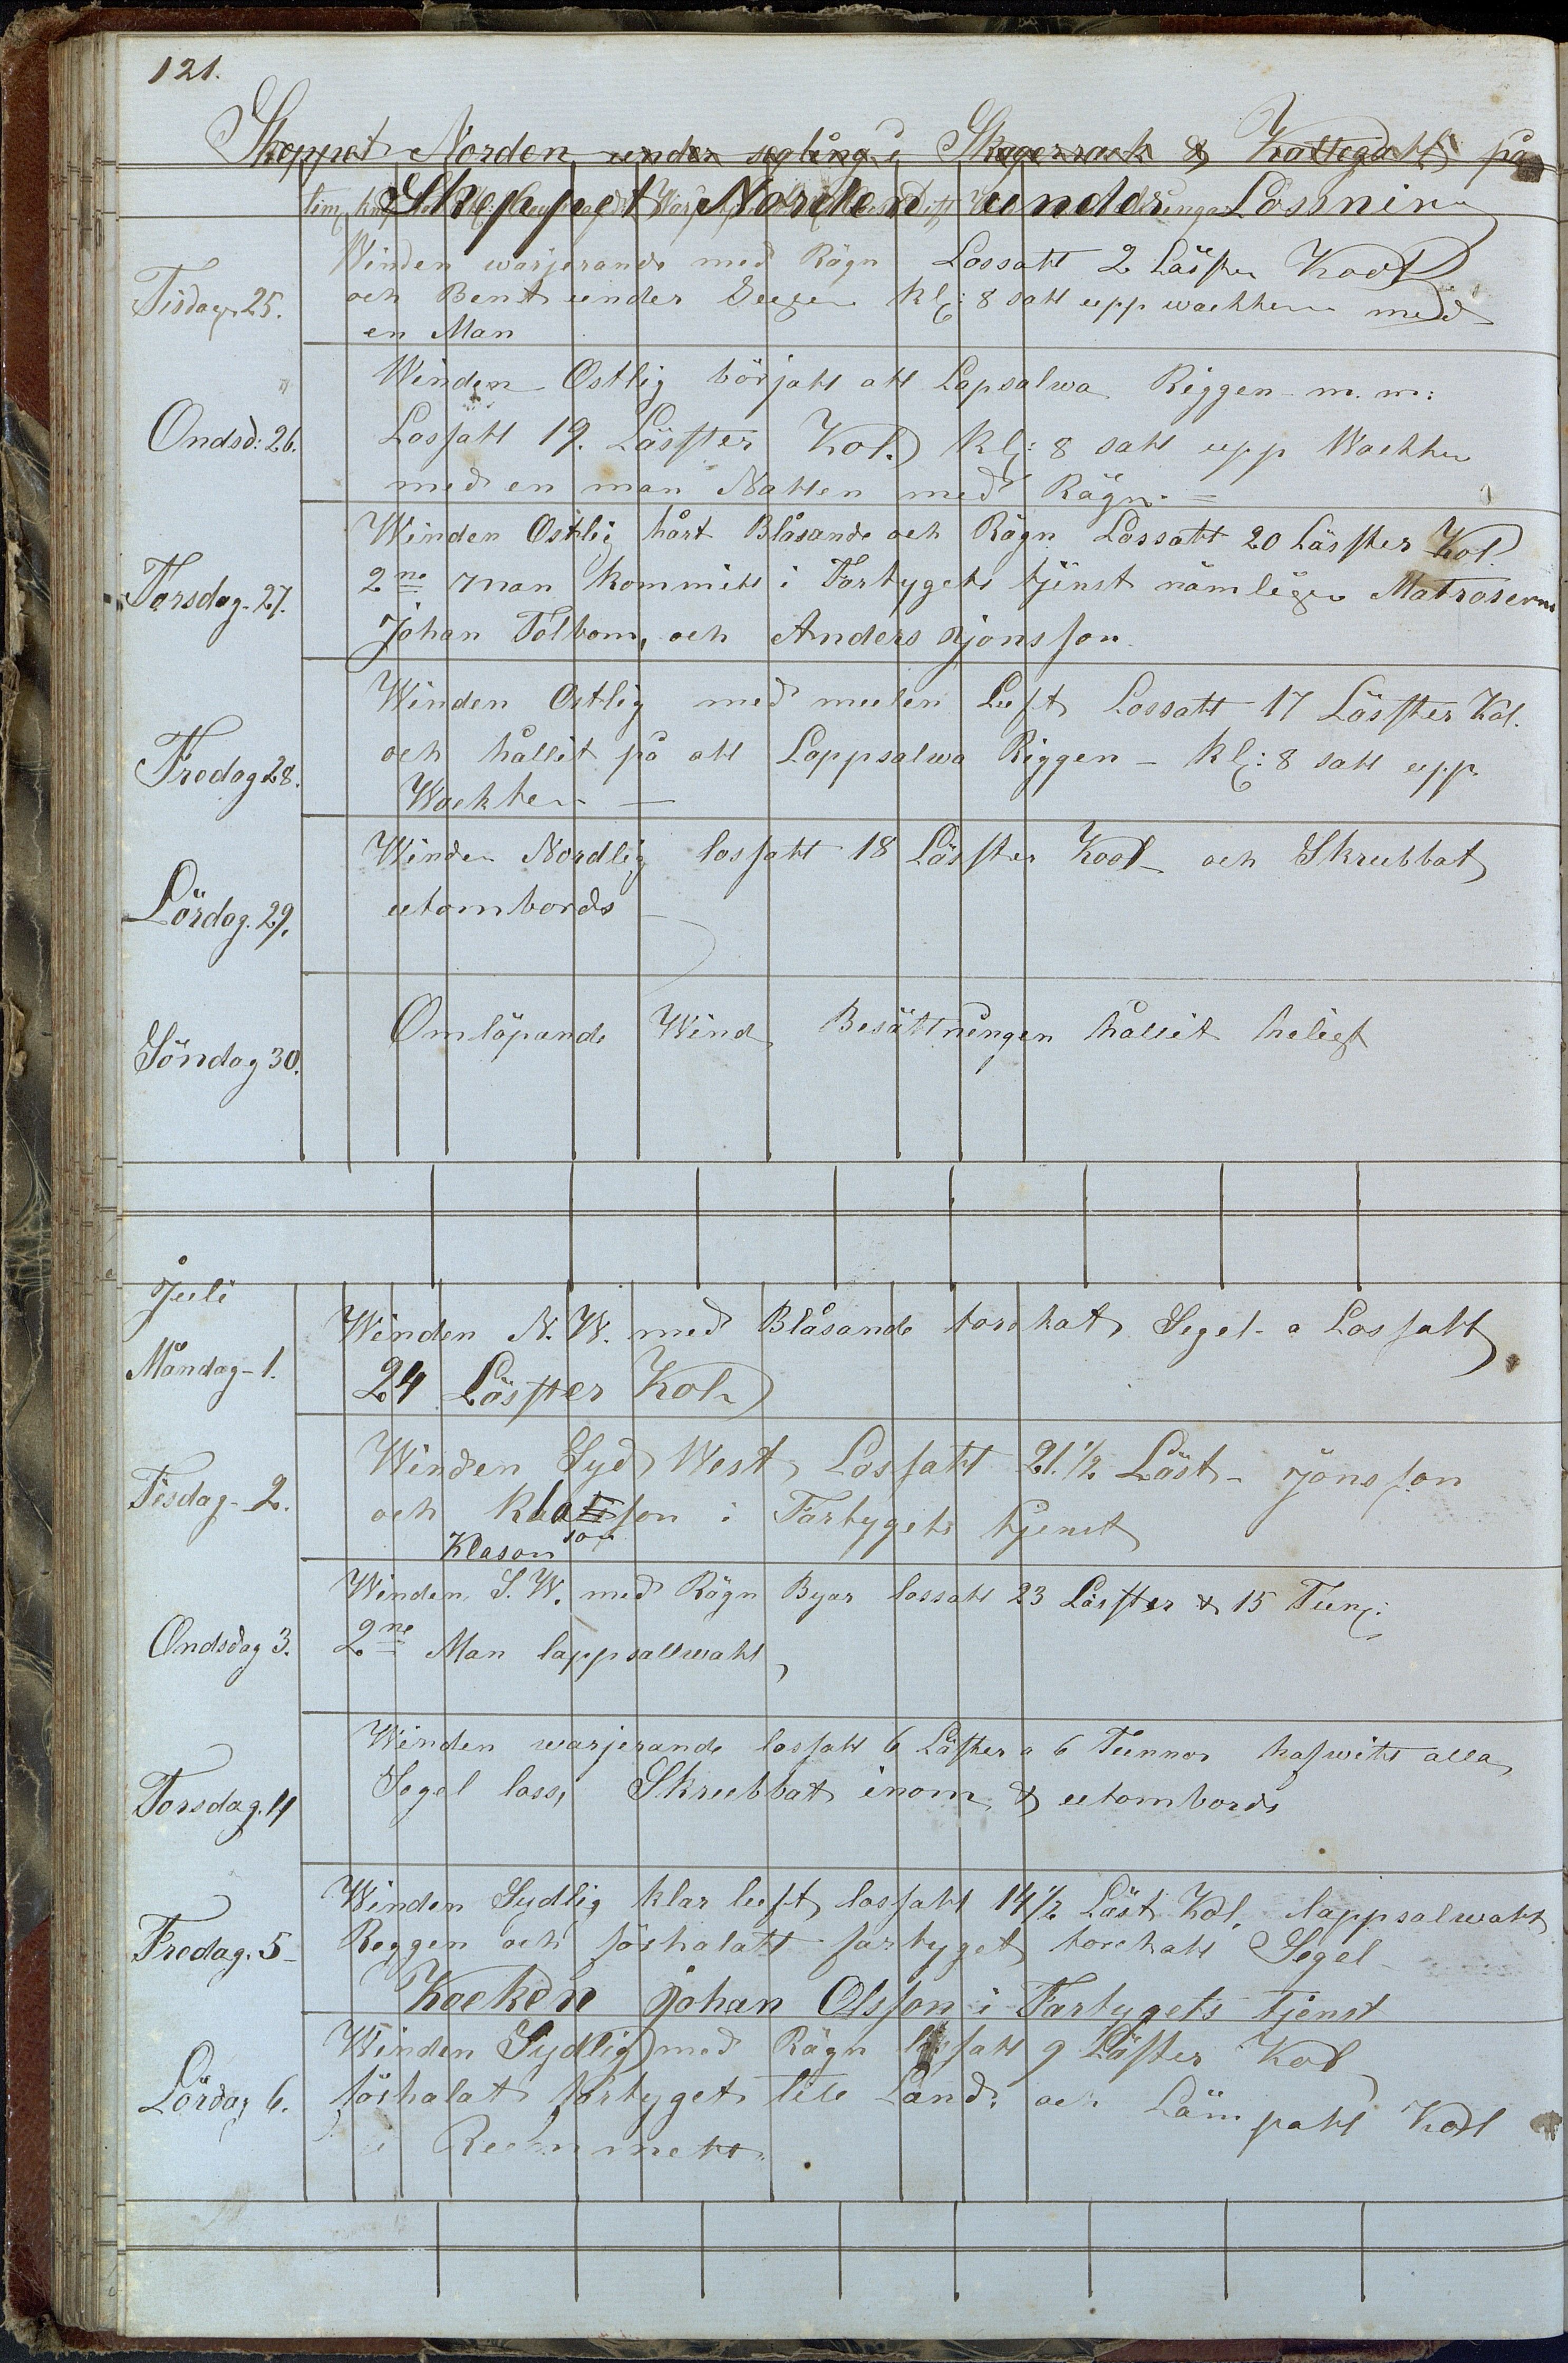 121.
Skeppet Norden under segling i Skagerrack & Kattegatt på
Skeppet Norden under Lossning
Tisdag 25.
Winden warjerande med Rägn Lossatt 2 Läster Kool
och Bent under Seegen kl: 8 satt upp wackten med
en Man
Ondsd: 26.
Winden Ostlig börjatt att Lapsalwa Riggen m. m:
Lossatt 19. Läster Kol. kl: 8 satt upp Wackten
med en man Natten med Rägn. =
Torsdag 27.
Winden Ostlig hårt Blåsande och Rägn Lossatt 20 Läster Kol.
2ne man kommitt i Fartygets tjenst nämligen Matroserne
Johan Tolbom, och Anders Jonsson.
Fredag 28.
Winden Ostlig med mulen Luft Lossatt 17 Läster Kol.
och hållit på att Lappsalwa Riggen – kl: 8 satt upp
Wackten –
Lördag. 29.
Winden Nordlig lossatt 18 Läster Kool och Skrubbat
utombords
Söndag 30.
Omlöpande Wind Besättningen hållit heligt
Juli
Måndag – 1.
Winden N. W. med Blåsande torckat Segel a Lossatt
24 Läster Kol
Tisdag – 2.
Winden Syd West Lossatt 21. 1/2 Läst – Jönsson
och Klasson i Fartygets tjenst
Klason son
Ondsdag 3.
Winden S. W. med Rägn Byar lossatt 23 Läster & 15 Tun:
2ne Man lappsallwatt
Torsdag. 4
Winden warjerande lossatt 6 Läster a 6 Tunnor hafwitt alla
Segel loss, Skrubbat inom & utombords
Fredag. 5 –
Winden Sydlig klar luft lossatt 14 1/2 Läst Kol. lappsalwatt
Reggen och förhalatt fartyget torckatt Segel –
Kocken Johan Olsson i Fartygets tjenst
Lördag 6.
Winden Sydlig med Rägn lossatt 9 Läster Kol
förhalat fartyget till Land: och Lämpatt Kol
i Rummett.